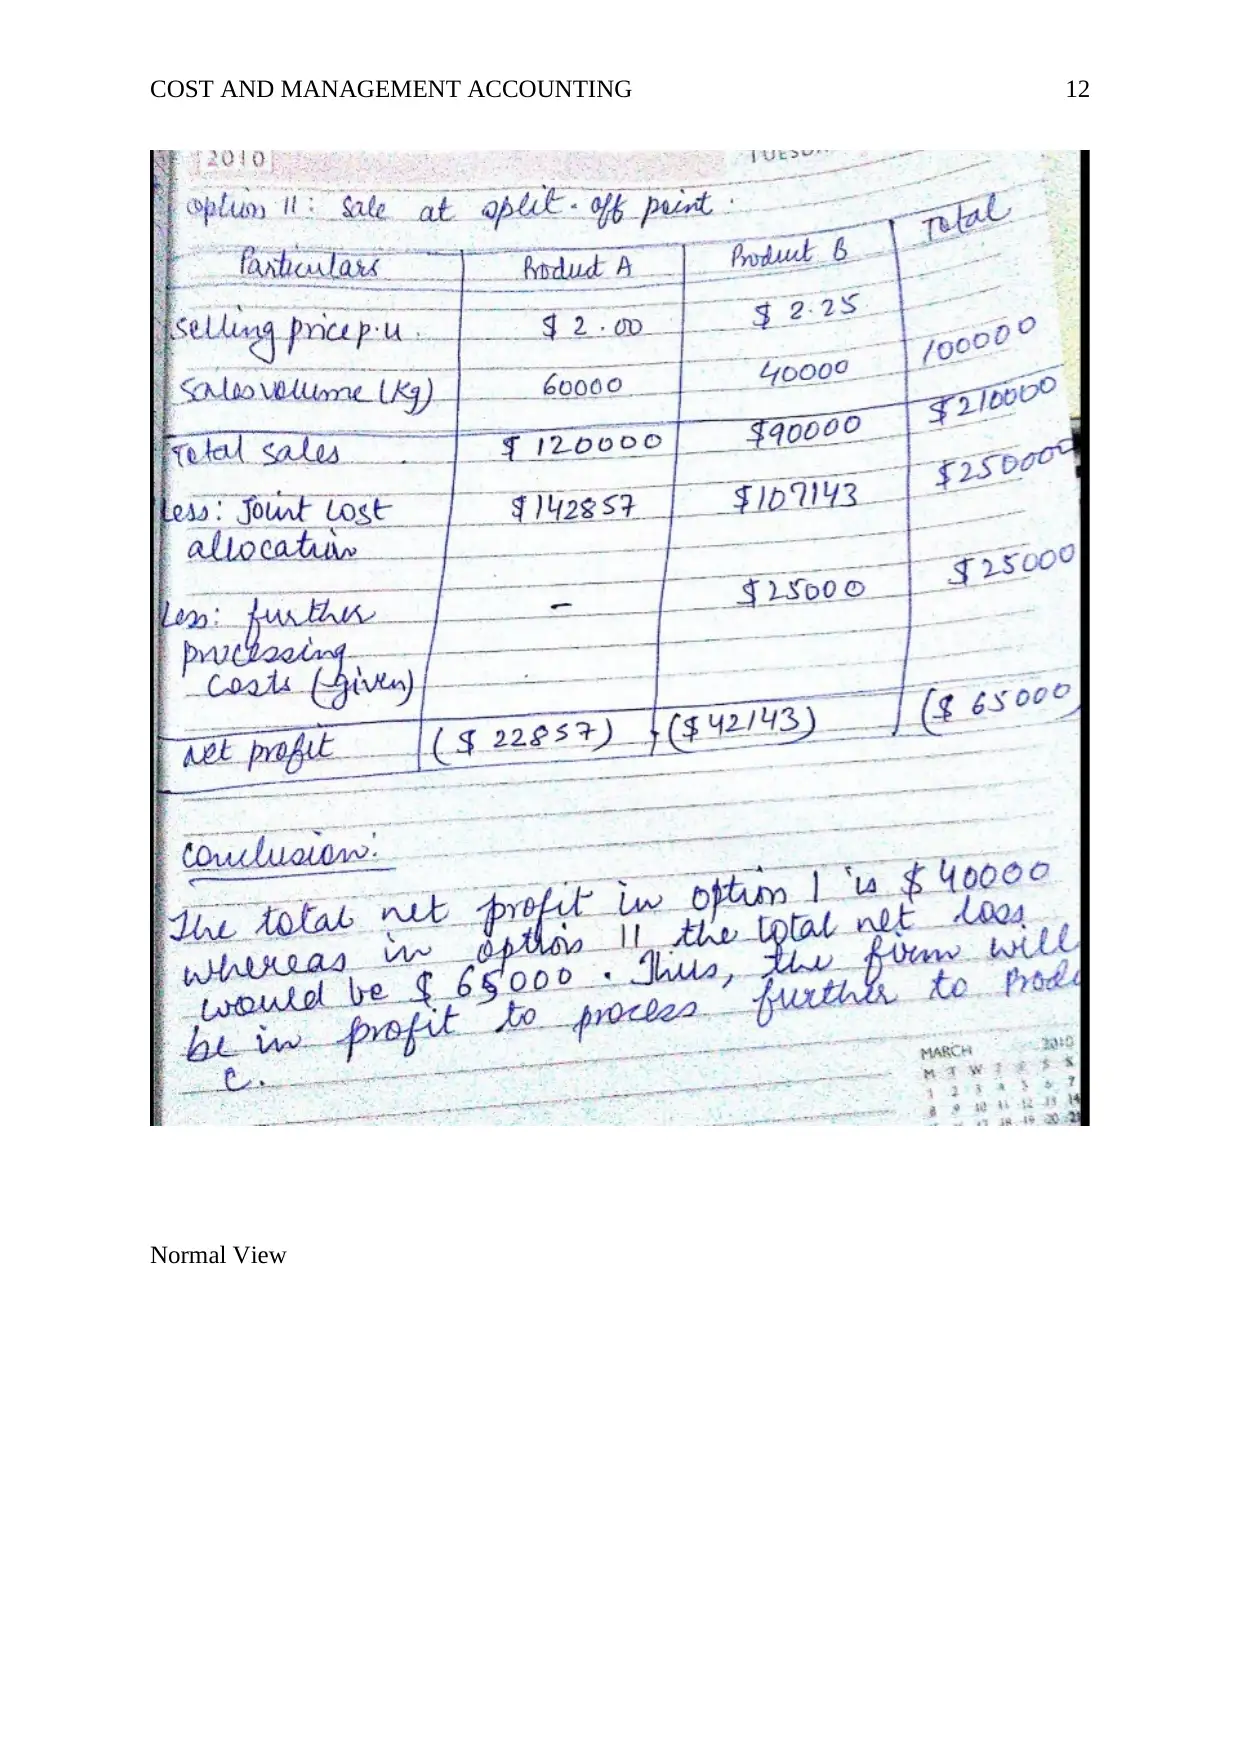 COST AND MANAGEMENT ACCOUNTING 12
2010 TUESD
option II : Sale at split-off point.
Particulars Product A Product B Total
Selling price p.u. $ 2.00 $ 2.25
Sales volume (Kg) 60000 40000 100000
Total sales $ 120000 $90000 $210000
Less: Joint Cost $142857 $107143 $250000
allocation
Less: further – $25000 $25000
processing
costs (given)
net profit ($ 22857) ($ 42143) ($ 65000)
Conclusion:
The total net profit in option I is $ 40000
whereas in option II the total net loss
would be $ 65000. Thus, the firm will
be in profit to process further to Produ
C.
MARCH 2010
M T W T F S S
1 2 3 4 5 6 7
8 9 10 11 12 13 14
18 19 20 21
Normal View